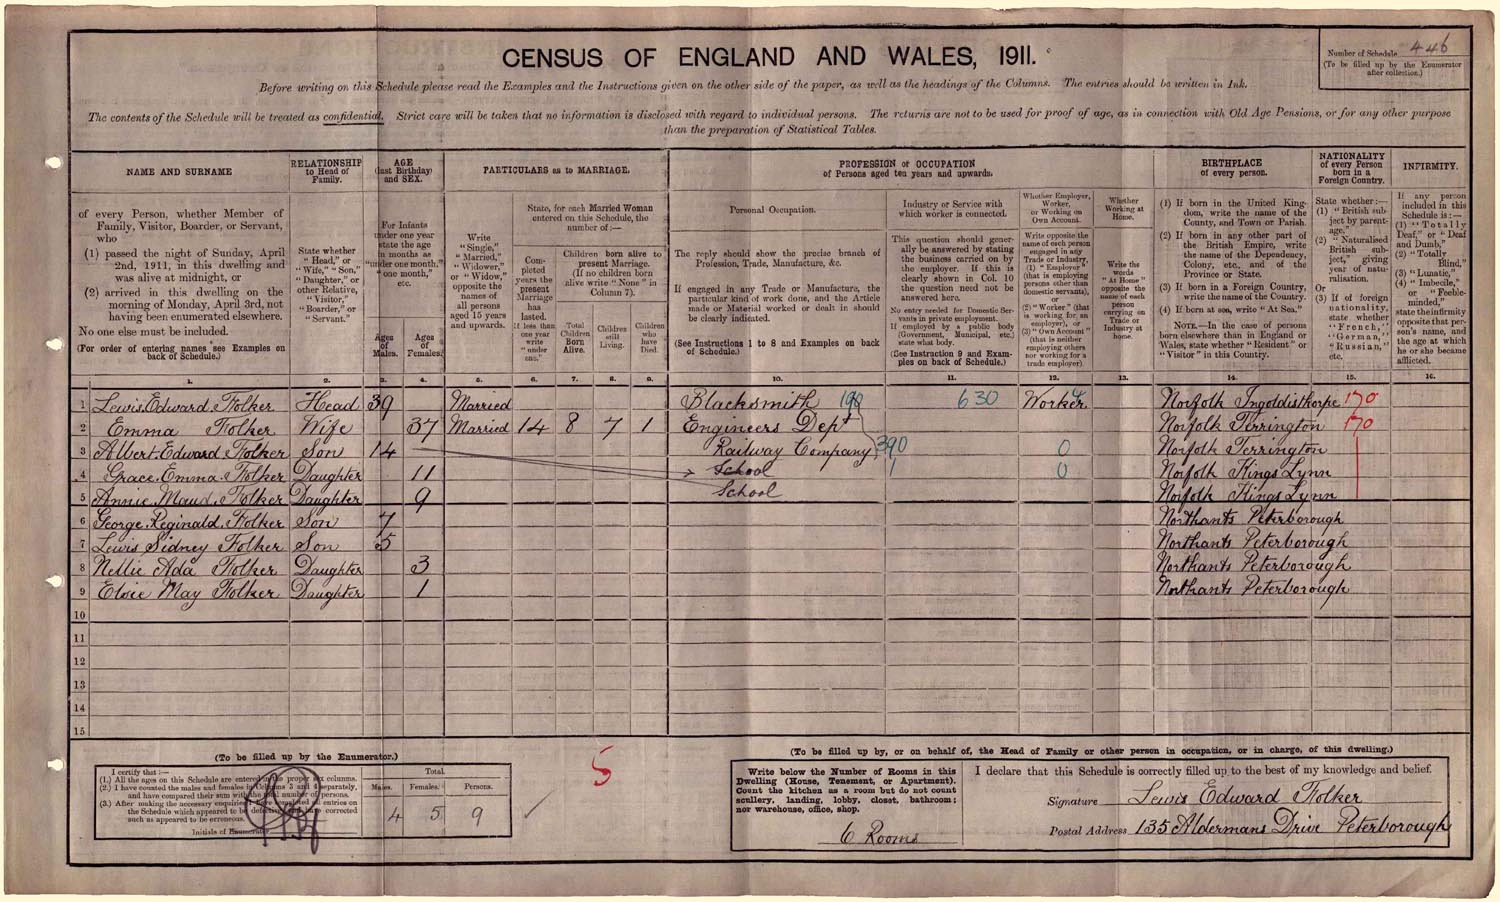 CENSUS OF ENGLAND AND WALES, 1911.
Number of Schedule 446
(To be filled up by the Enumerator after collection.)
Before writing on this Schedule please read the Examples and the Instructions given on the other side of the paper, as well as the headings of the Columns. The entries should be written in Ink.
The contents of the Schedule will be treated as confidential. Strict care will be taken that no information is disclosed with regard to individual persons. The returns are not to be used for proof of age, as in connection with Old Age Pensions, or for any other purpose
than the preparation of Statistical Tables.
NAME AND SURNAME
of every Person, whether Member of
Family, Visitor, Boarder, or Servant,
who
(1) passed the night of Sunday, April
2nd, 1911, in this dwelling and
was alive at midnight, or
(2) arrived in this dwelling on the
morning of Monday, April 3rd, not
having been enumerated elsewhere.
No one else must be included.
(For order of entering names see Examples on
back of Schedule.)
RELATIONSHIP
to Head of
Family.
State whether
"Head," or
"Wife," "Son,"
"Daughter," or
other Relative,
"Visitor,"
"Boarder," or
"Servant."
AGE
(last Birthday)
and SEX.
For Infants
under one year
state the age
in months as
"under one month,"
"one month,"
etc.
Ages
of
Males.
Ages
of
Females.
PARTICULARS as to MARRIAGE.
Write
"Single,"
"Married,"
"Widower,"
or "Widow,"
opposite the
names of
all persons
aged 15 years
and upwards.
State, for each Married Woman
entered on this Schedule, the
number of:—
Completed
years the
present
Marriage
has
lasted.
If less than
one year
write
"under
one."
Children born alive to
present Marriage.
(If no children born
alive write "None" in
Column 7).
Total
Children
Born
Alive.
Children
still
Living.
Children
who
have
Died.
PROFESSION or OCCUPATION
of Persons aged ten years and upwards.
Personal Occupation.
The reply should show the precise branch of
Profession, Trade, Manufacture, &c.
If engaged in any Trade or Manufacture, the
particular kind of work done, and the Article
made or Material worked or dealt in should
be clearly indicated.
(See Instructions 1 to 8 and Examples on back
of Schedule.)
Industry or Service with
which worker is connected.
This question should generally
be answered by stating
the business carried on by
the employer. If this is
clearly shown in Col. 10
the question need not be
answered here.
No entry needed for Domestic Servants
in private employment.
If employed by a public body
(Government, Municipal, etc.)
state what body.
(See Instruction 9 and Examples
on back of Schedule.)
Whether Employer,
Worker,
or Working on
Own Account.
Write opposite the
name of each person
engaged in any
Trade or Industry,
(1) "Employer"
(that is employing
persons other than
domestic servants),
or
(2) "Worker" (that
is working for an
employer), or
(3) "Own Account"
(that is neither
employing others
nor working for a
trade employer).
Whether
Working at
Home.
Write the
words
"At Home"
opposite the
name of each
person
carrying on
Trade or
Industry at
home.
BIRTHPLACE
of every person.
(1) If born in the United Kingdom,
write the name of the
County, and Town or Parish.
(2) If born in any other part of
the British Empire, write
the name of the Dependency,
Colony, etc., and of the
Province or State.
(3) If born in a Foreign Country,
write the name of the Country.
(4) If born at sea, write "At Sea."
NOTE.—In the case of persons
born elsewhere than in England or
Wales, state whether "Resident" or
"Visitor" in this Country.
NATIONALITY
of every Person
born in a
Foreign Country.
State whether:—
(1) "British subject
by parentage."
(2) "Naturalised
British subject,"
giving
year of naturalisation.
Or
(3) If of foreign
nationality,
state whether
"French,"
"German,"
"Russian,"
etc.
INFIRMITY.
If any person
included in this
Schedule is:—
(1) "Totally
Deaf," or "Deaf
and Dumb,"
(2) "Totally
Blind,"
(3) "Lunatic,"
(4) "Imbecile,"
or "Feeble-minded,"
state the infirmity
opposite that person's
name, and
the age at which
he or she became
afflicted.
1. 2. 3. 4. 5. 6. 7. 8. 9. 10. 11. 12. 13. 14. 15. 16.
1 Lewis Edward Folker Head 39 Married Blacksmith 190 630 Worker Norfolk Ingoldisthorpe 170
2 Emma Folker Wife 37 Married 14 8 7 1 Engineers Dept Norfolk Terrington 170
3 Albert Edward Folker Son 14 Railway Company 390 0 Norfolk Terrington
4 Grace Emma Folker Daughter 11 School 1 0 Norfolk Kings Lynn
5 Annie Maud Folker Daughter 9 School Norfolk Kings Lynn
6 George Reginald Folker Son 7 Northants Peterborough
7 Lewis Sidney Folker Son 5 Northants Peterborough
8 Nellie Ada Folker Daughter 3 Northants Peterborough
9 Elsie May Folker Daughter 1 Northants Peterborough
10
11
12
13
14
15
(To be filled up by the Enumerator.)
I certify that:—
(1.) All the ages on this Schedule are entered in the proper sex columns.
(2.) I have counted the males and females in Columns 3 and 4 separately,
and have compared their sum with the total number of persons.
(3.) After making the necessary enquiries I have completed all entries on
the Schedule which appeared to be defective, and have corrected
such as appeared to be erroneous.
Initials of Enumerator
Total.
Males. Females. Persons.
4 5 9
5
(To be filled up by, or on behalf of, the Head of Family or other person in occupation, or in charge, of this dwelling.)
Write below the Number of Rooms in this
Dwelling (House, Tenement, or Apartment).
Count the kitchen as a room but do not count
scullery, landing, lobby, closet, bathroom;
nor warehouse, office, shop.
6 Rooms
I declare that this Schedule is correctly filled up to the best of my knowledge and belief.
Signature Lewis Edward Folker
Postal Address 135 Aldermans Drive Peterborough